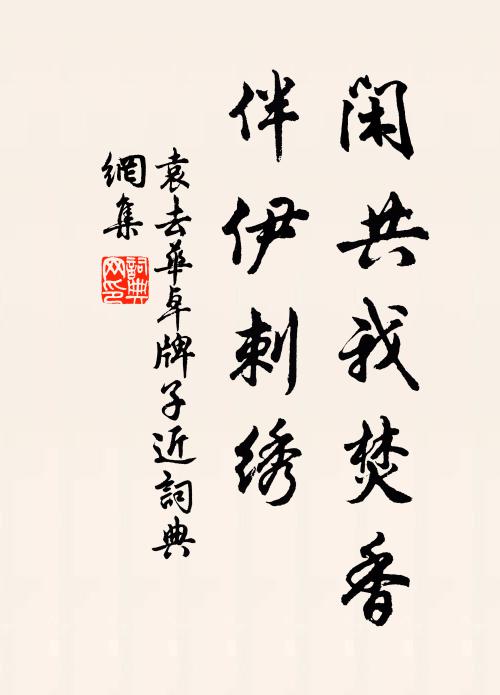 闲共我焚香
伴伊刺绣
袁去華卓牌子近詞典
網集
詞典
网印